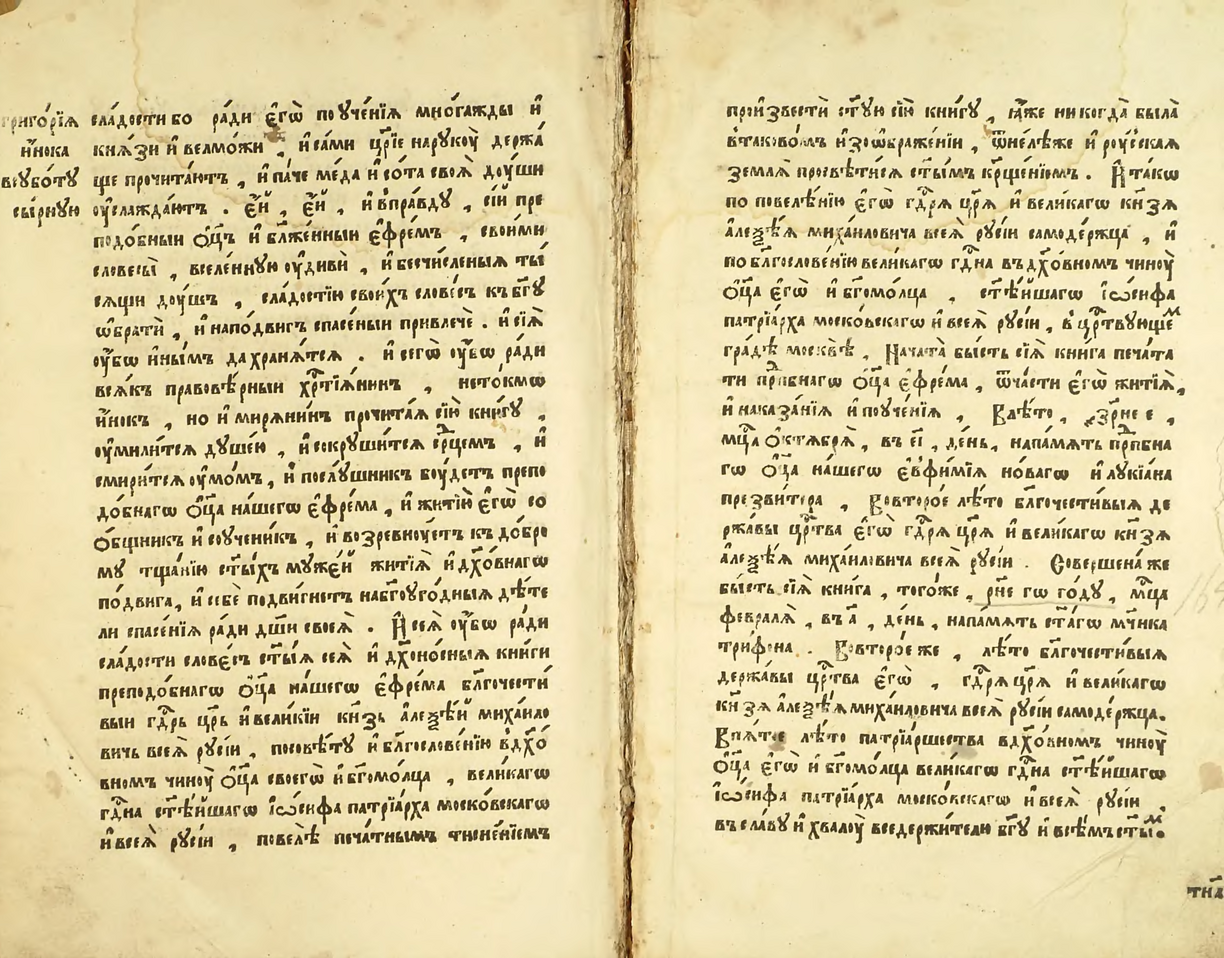 григо́рїѧ
и҆́нока
всꙋбо́тꙋ
сы́рнꙋю
сла́дости бо ра́ди є҆гѡ̀ поꙋче́нїѧ мно́гажды и҆
кнѧ́зи и҆ велмо́жи , и҆ са́ми цр҃їе нарꙋкоу̀ держа́
ще прочита́ютъ , и҆ па́че ме́да и҆ со́та своѧ̀ дꙋ́ши
оу҆слажда́ютъ . є҆́й , є҆́й , и҆ впра́вдꙋ , се́й пре
подо́бныи ѻ҆ц҃ъ и҆ бл҃же́нныи є҆фре́мъ , свои́ми
словесы̀ , вселе́ннꙋю оу҆дивѝ , и҆ бесчи́сленыѧ ты́
сѧщи доу́шъ , сла́достїю свои́хъ слове́съ къ бг҃ꙋ
ѡ҆братѝ , и҆ напо́двигъ спасе́ныи привлечѐ . и҆ сїѧ̀
оу҆́бѡ и҆ны́мъ да хранѧ́тсѧ . и҆ сегѡ̀ оу҆́бѡ ра́ди
всѧ́къ правовѣ́рныи хрⷭ҇тїѧ́нинъ , нето́кмѡ
и҆́нокъ , но и҆ мирѧ́нинъ прочита́ѧ сїю̀ кни́гꙋ ,
оу҆мили́тсѧ дꙋше́ю , и҆ сокрꙋши́тсѧ срⷣцемъ , и҆
смири́тсѧ оу҆мо́мъ , и҆ послꙋ́шникъ боу́детъ препо
до́бнагѡ ѻ҆ц҃а на́шегѡ є҆фре́ма , и҆ житїю̀ є҆гѡ̀ со
о́бщникъ и҆ соꙋче́никъ , и҆ возревноу́етъ къ до́бро
мꙋ тща́нїю ст҃ы́хъ мꙋже́й житїѧ̀ и҆ дх҃о́внагѡ
по́двига , и҆ себѐ подви́гнетъ набг҃оꙋго́дныѧ дѣ́те
ли спасе́нїѧ ра́ди дш҃и своеѧ̀ . И҆ сеѧ̀ оу҆́бѡ ра́ди
сла́дости слове́съ ст҃ы́ѧ сеѧ̀ и҆ дх҃оно́сныѧ кни́ги
преподо́бнагѡ ѻ҆ц҃а на́шегѡ є҆фре́ма бл҃гочести́
выи гдⷭ҇рь цр҃ь и҆ вели́кїи кнѧ҃зь алеѯѣ́й миха́ило
вичь всеѧ̀ рꙋсі́и , посовѣ́тꙋ и҆ бл҃гослове́нїю вдх҃о́
вномъ чиноу̀ ѻ҆ц҃а своегѡ̀ и҆ бг҃омо́лца , вели́кагѡ
гдⷭ҇на ст҃ѣ́йшагѡ і҆ѡ́сифа патрїа́рха моско́вскагѡ
и҆ всеѧ̀ рꙋсі́и , повелѣ̀ печа́тнымъ тисне́нїемъ
произвестѝ ст҃ꙋ́ю сїю̀ кни́гꙋ , ꙗ҆́же никогда̀ была̀
втаково́мъ и҆зѡбраже́нїи , ѿне́лѣже и҆ роу́сская
землѧ̀ просвѣти́сѧ ст҃ы́мъ крⷳ҇ще́нїемъ . И҆ та́кѡ
по повелѣ́нїю є҆гѡ̀ гдⷭ҇рѧ цр҃ѧ̀ и҆ вели́кагѡ кнѧ҃зѧ
алеѯѣ́ѧ миха́иловича всеѧ̀ рꙋсі́и самоде́ржца , и҆
по бл҃гослове́нїю вели́кагѡ гдⷭ҇на въ дх҃о́вномъ чиноу̀
ѻ҆ц҃а є҆гѡ̀ и҆ бг҃омо́лца , ст҃ѣ́йшагѡ і҆ѡ́сифа
патрїа́рха моско́вскагѡ и҆ всеѧ̀ рꙋсі́и , в цр҃твꙋющеⷨ
гра́дѣ москвѣ̀ , Нача́та бы́сть сїѧ̀ кни́га печа́та
ти прⷣпбнагѡ ѻ҆ц҃а є҆фре́ма , ѿча́сти є҆гѡ̀ житїѧ̀ ,
и҆ наказа́нїѧ и҆ поꙋче́нїѧ , Влѣ́то , ҂зр҃не е ,
мцⷭ҇а ѻ҆ктѧбрѧ̀ , въ є҃і , де́нь , на па́мѧть прпⷣбна
гѡ ѻ҆ц҃а на́шегѡ є҆вфи́мїѧ но́вагѡ и҆ лꙋкїа́на
презви́тера , Вовторо́е лѣ́то бл҃гочести́выѧ де
ржа́вы црⷭ҇тва є҆гѡ̀ гдⷭ҇рѧ цр҃ѧ̀ и҆ вели́кагѡ кнѧ҃зѧ
алеѯѣ́ѧ миха́иловича всеѧ̀ рꙋсі́и . Соверше́на же
бы́сть сїѧ̀ кни́га , того́же , рн҃е гѡ го́дꙋ , мцⷭ҇а
февралѧ̀ , въ а҃ , де́нь , на па́мѧть ст҃а́гѡ мч҃ника
три́фона . Вовторо́е же , лѣ́то бл҃гочести́выѧ
держа́вы црⷭ҇тва є҆гѡ̀ , гдⷭ҇рѧ цр҃ѧ̀ и҆ вели́кагѡ
кнѧ҃зѧ алеѯѣ́ѧ миха́иловича всеѧ̀ рꙋсі́и самоде́ржца .
Впѧ́тое лѣ́то патрїа́ршества вдх҃о́вномъ чиноу̀
ѻ҆ц҃а є҆гѡ̀ и҆ бг҃омо́лца вели́кагѡ гдⷭ҇на ст҃ѣ́йшагѡ
і҆ѡ́сифа патрїа́рха моско́вскагѡ и҆ всеѧ̀ рꙋсі́и ,
въ сла́вꙋ и҆ хвалоу̀ вседержи́телю бг҃ꙋ и҆ всѣ́мъ ст҃ыⷨ .